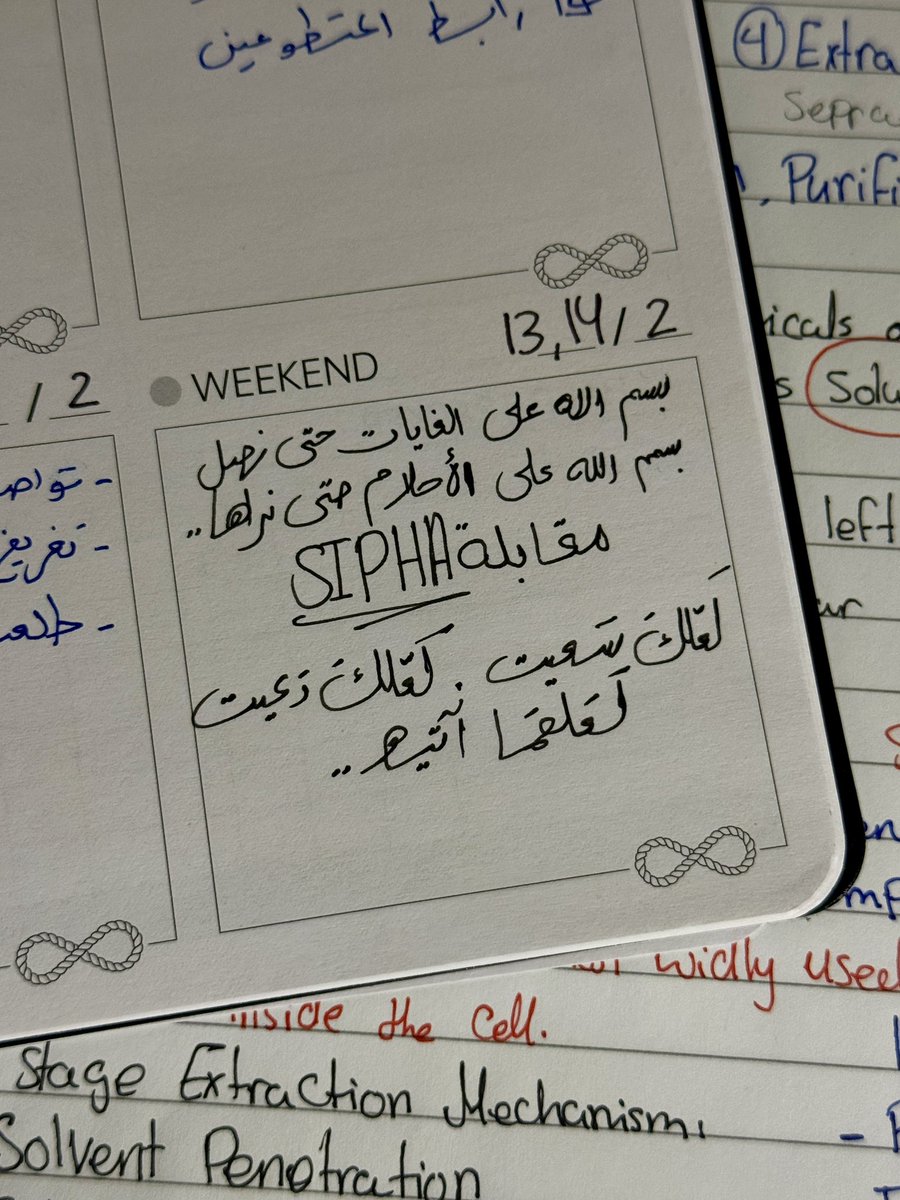 رابط المتطوعين
/ 2
WEEKEND
13,14/2
بسم الله على الغايات حتى نصل
بسم الله على الأحلام حتى نراها..
مقابلة SIPHA
لعَلكَ سَعيت . لَعَلكَ دَعيت
لَعَلهَا آتيه..
4 Extra
Sepra
Purifi
icals
Solu
left
ur
widly used
inside the cell.
Stage Extraction Mechanism
Solvent Penotration